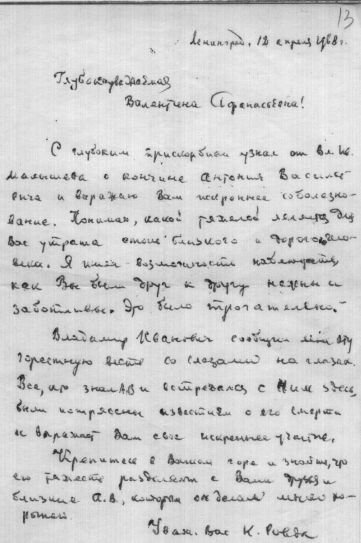 13
Ленинград, 12 апреля 1968 г.
Глубокоуважаемая
Валентина Афанасьевна!
С глубоким прискорбием узнал от Вл. Ив.
Малышева о кончине Антония Василье-
вича и выражаю Вам искреннее соболезно-
вание. Понимаю, какой тяжелой является для
Вас утрата столь близкого и дорогого чело-
века. Я имел возможность наблюдать,
как Вы были друг к другу нежны и
заботливы. Это было трогательно.
Владимир Иванович сообщил мне эту
горестную весть со слезами на глазах.
Все, кто знал АВ и встречался с Ним здесь,
были потрясены известием о его смерти
и выражают Вам свое искреннее участие.
Крепитесь в Вашем горе и знайте, что
его тяжесть разделяют с Вами друзья и
близкие А.В., которым он делал много хо-
рошего
Уваж. Вас К.